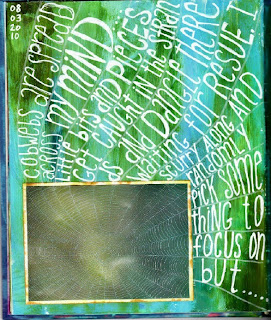 08
03
20
10
cobwebs are spread
across my MIND...
Little bits and PIECES
Get CAUGHT IN the stran
ds and DANGLE there
waiting for RESUE. I
scurry along AND
randomly
pick some
thing to
focus on
but.....